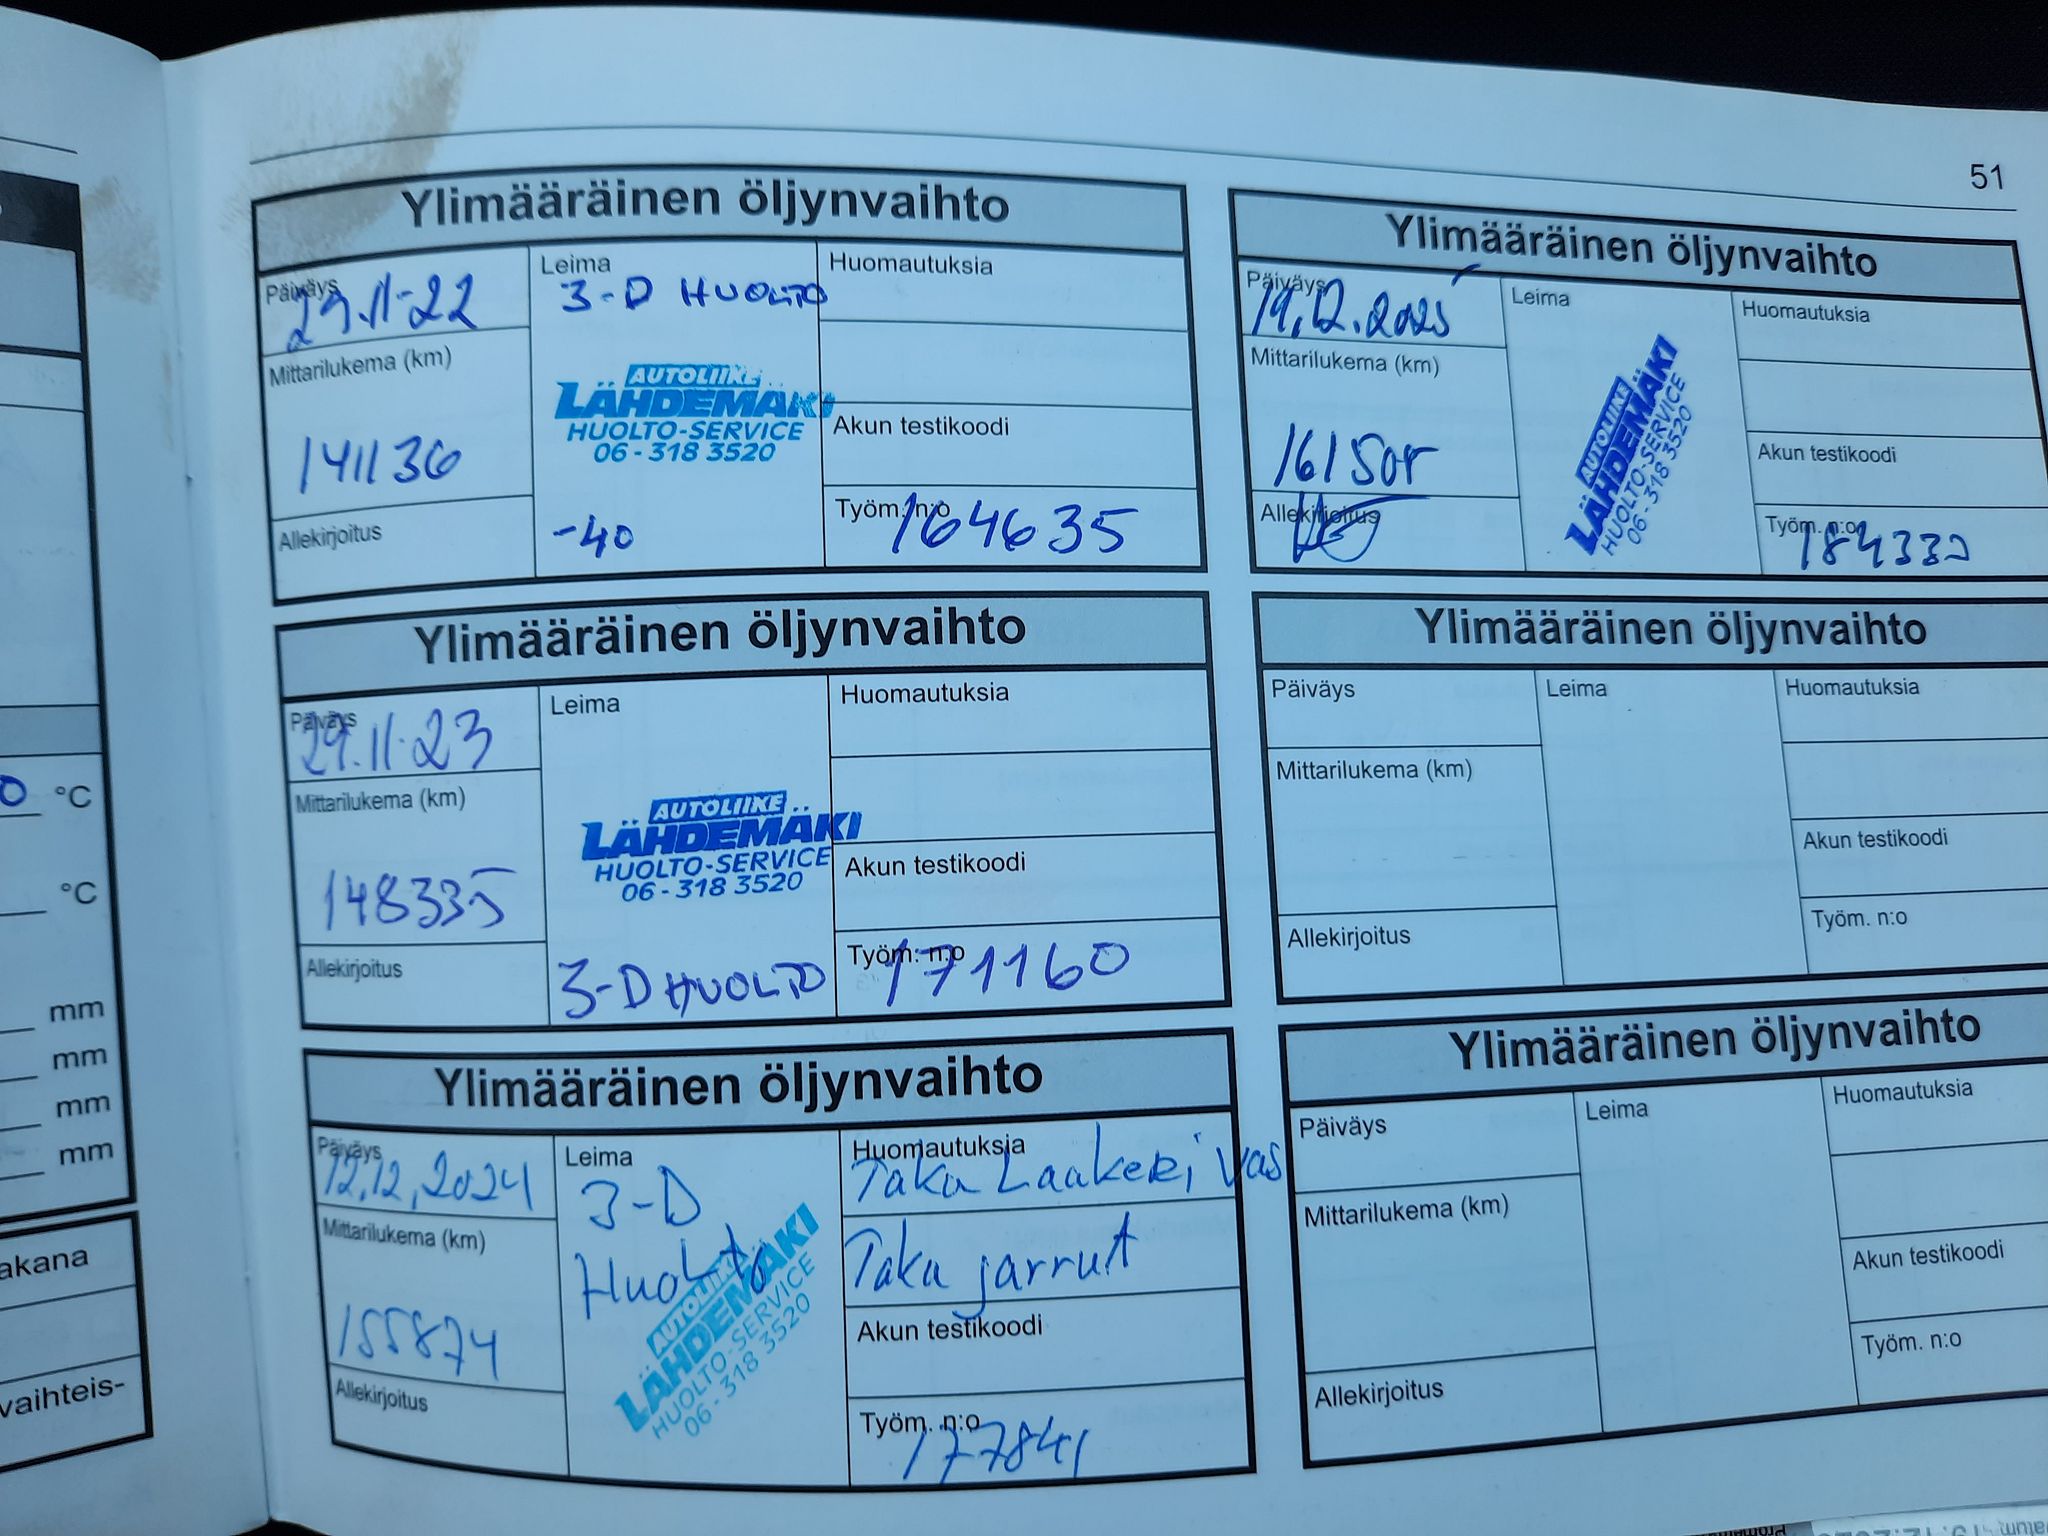 51
Ylimääräinen öljynvaihto
Päiväys
29.11-22
Leima
3-D HUOLTO
Huomautuksia
Mittarilukema (km)
141136
AUTOLIIKE
LÄHDEMÄKI
HUOLTO-SERVICE
06 - 318 3520
Akun testikoodi
Allekirjoitus
-40
Työm. n:o
164635
Ylimääräinen öljynvaihto
Päiväys
29.11.23
Leima
Huomautuksia
Mittarilukema (km)
148335
AUTOLIIKE
LÄHDEMÄKI
HUOLTO-SERVICE
06 - 318 3520
Akun testikoodi
Allekirjoitus
3-D HUOLTO
Työm. n:o
171160
Ylimääräinen öljynvaihto
Päiväys
12.12.2024
Leima
3-D
Huolto
Huomautuksia
Taka Laakeri vas
Taka jarrut
Mittarilukema (km)
155874
AUTOLIIKE
LÄHDEMÄKI
HUOLTO-SERVICE
06 - 318 3520
Akun testikoodi
Allekirjoitus
Työm. n:o
177841
Ylimääräinen öljynvaihto
Päiväys
19.12.2025
Leima
Huomautuksia
Mittarilukema (km)
AUTOLIIKE
LÄHDEMÄKI
HUOLTO-SERVICE
06 - 318 3520
Akun testikoodi
Allekirjoitus
Työm. n:o
Ylimääräinen öljynvaihto
Päiväys
Leima
Huomautuksia
Mittarilukema (km)
Akun testikoodi
Allekirjoitus
Työm. n:o
Ylimääräinen öljynvaihto
Päiväys
Leima
Huomautuksia
Mittarilukema (km)
Akun testikoodi
Allekirjoitus
Työm. n:o
°C
°C
mm
mm
mm
mm
akana
vaihteis-